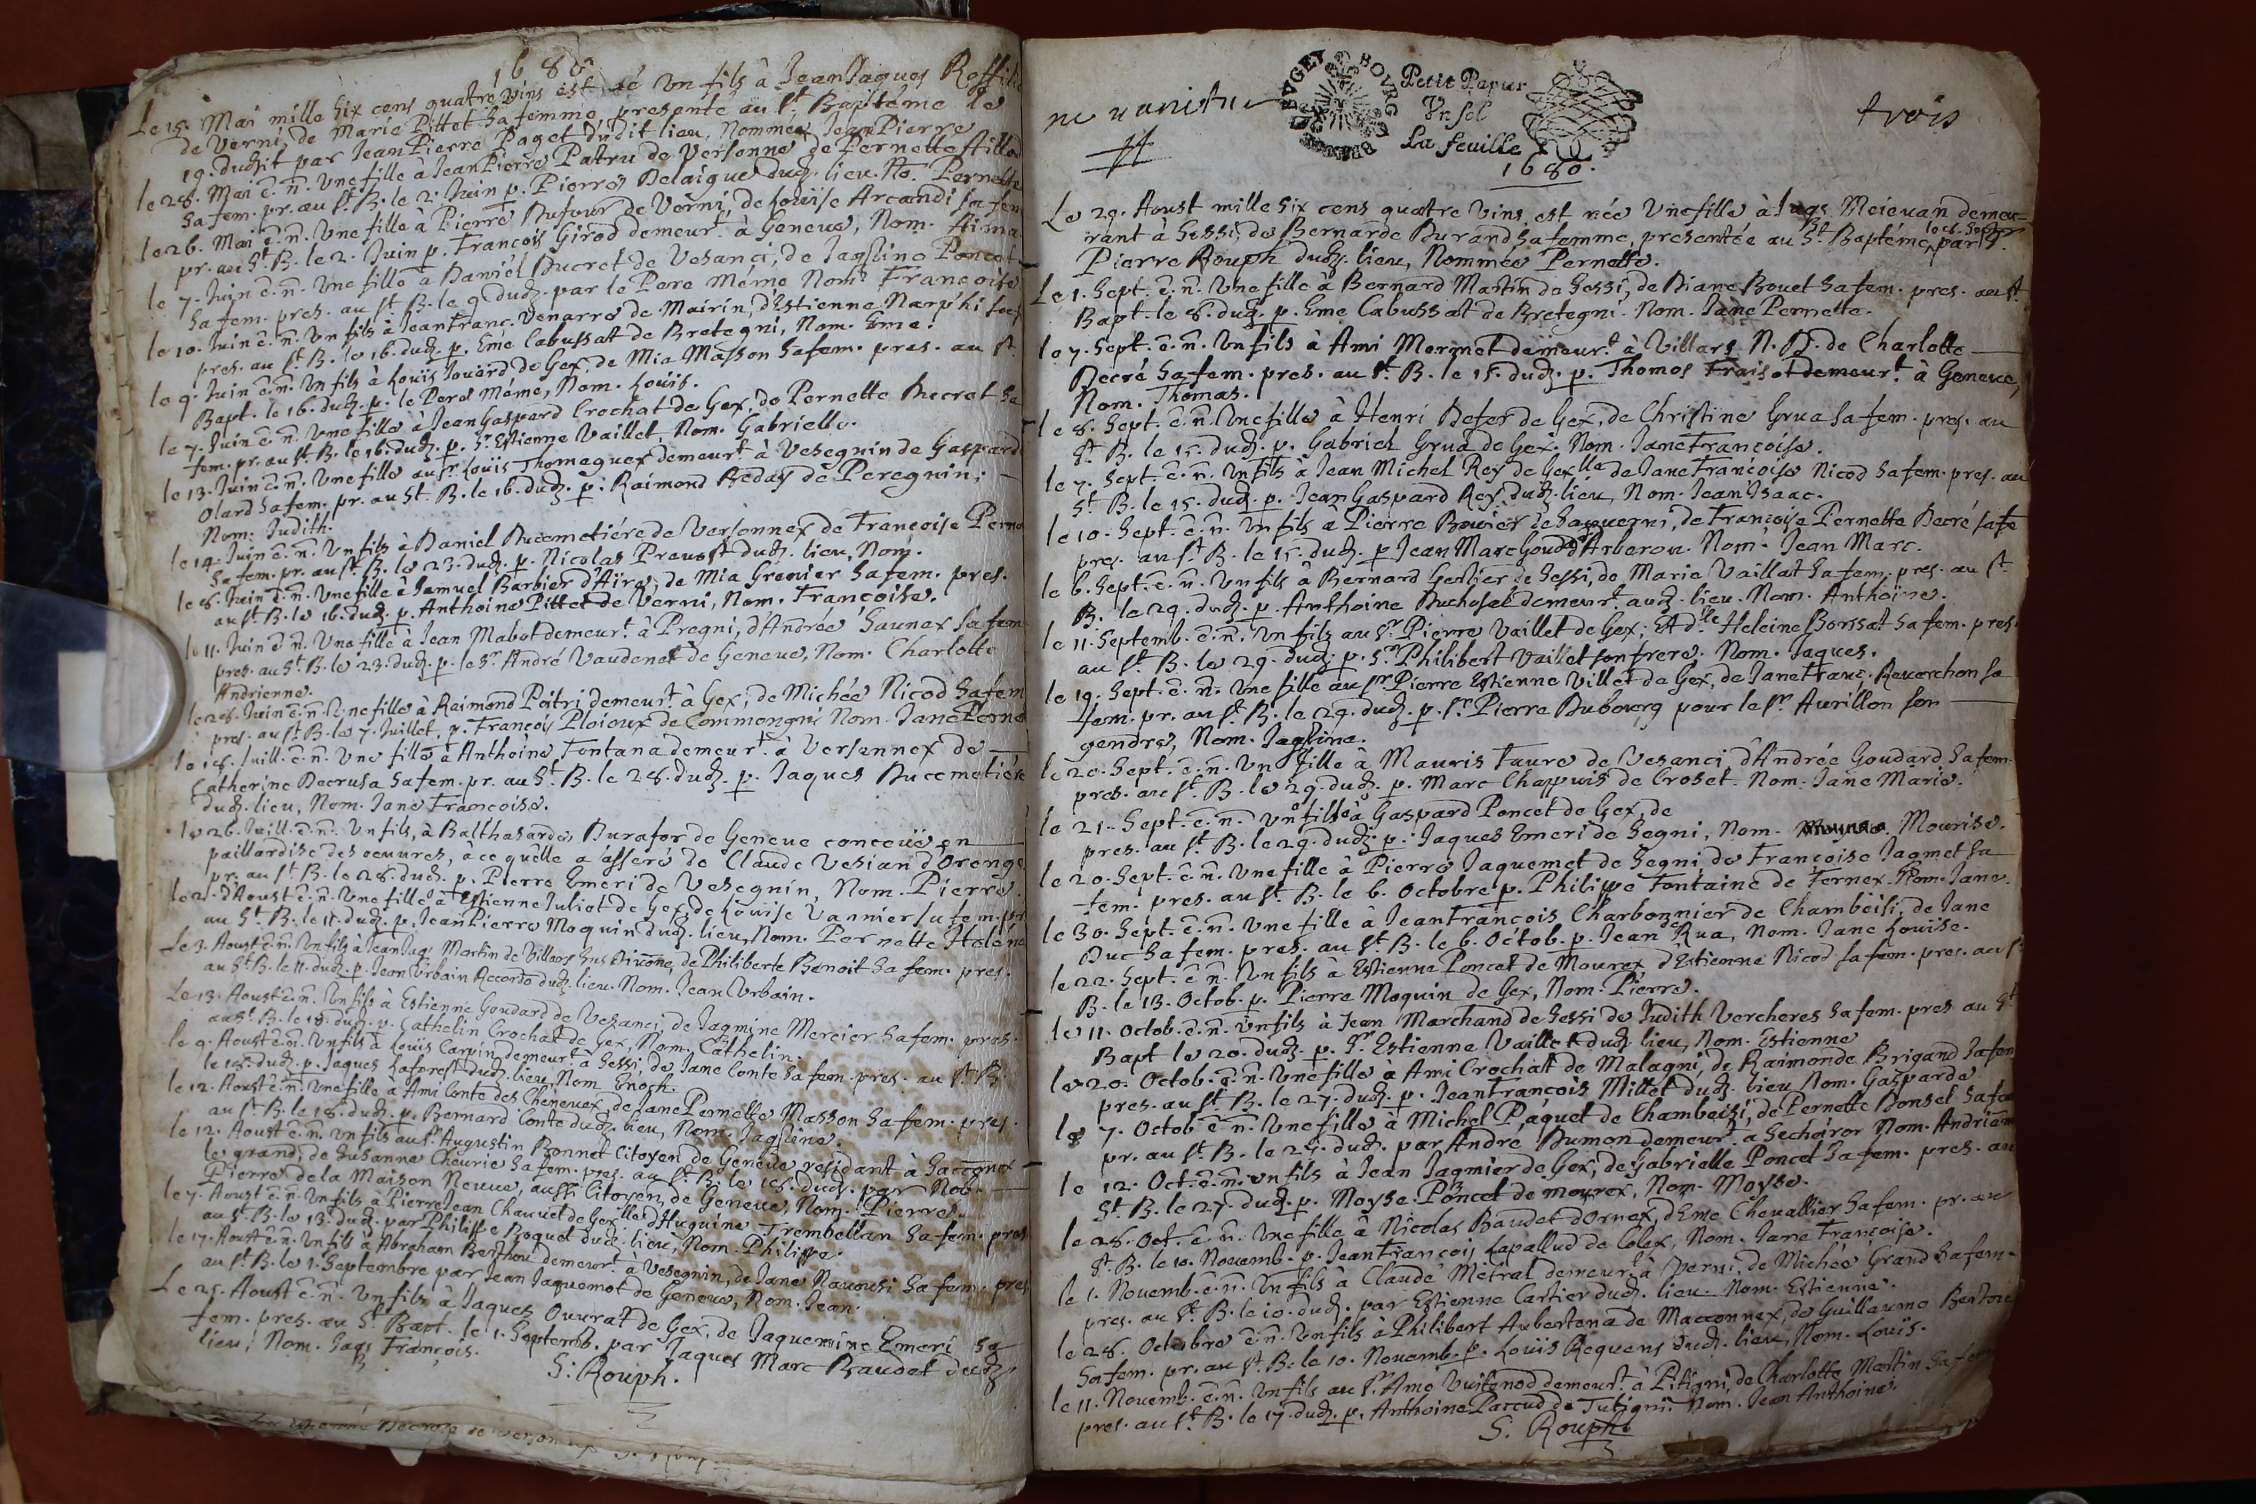 1680
Le 15. Mai mille Six cens quatre vins est né Un fils â Jean Jaques Roffill
de Verni, de Marie Pittet Sa femme, presenté au St Baptéme le
19. dudit par Jean Pierre Paget dudit lieu, Nommé Jean Pierre
le 28. Mai ē. n̄. Une fille â Jean Pierre Patru de Versonne de Pernette Aillod
Sa fem. pr. au St. B. le 2. Juin p. Pierre Delaigue dudz. lieu. No. Pernette
le 26. Mai ē. n̄. Une fille â Pierre Dufour de Verni, de Louise Arcandi sa fem
pr. au St. B. le 2. Juin p. François Girod demeurt. â Geneve, Nom. Aima
le 7. Juin ē. n̄. Une fille â Daniel Ducret de Vesanci, de Jaqline Poncet
Sa fem. pres. au St. B. le 9. dudz. par le Pere Méme Nom. Françoise
le 10. Juin ē. n̄. Un fils â Jean Franc. Venarre de Mairin, d'Estienne
pres. au St. B. le 16. dudz. p. Eme Cabussat de Bretegni, Nom. Eme.
le 9. Juin ē. n̄. Un fils â Louis Jouard de Gex, de Mia Masson Sa fem. pres. au St.
Bapt. le 16. dudz. p. le Pere Méme, Nom. Louis.
le 7. Juin ē. n̄. Une fille â Jean Gaspard Crochat de Gex, de Pernette Ducret Sa
fem. pr. au St. B. le 16. dudz. p. Sr. Estienne Vaillet, Nom. Gabrielle.
le 13. Juin ē. n̄. Une fille au Sr Louis Thomeguex demeurt â Vesegnin de Gaspard
Olard Sa fem. pr. au St. B. le 16. dudz. p. Raimond Beday de Peregnin,
Nom. Judith.
le 14. Juin ē. n̄. Un fils â Daniel Ducemetiére de Versonnex de Françoise Perno
Sa fem. pr. au St. B. le 23. dudz. p. Nicolas Prevost dudz. lieu, Nom.
le 8. Juin ē. n̄. Une fille â Samuel Barbier d'Aire, de Mia Grenier Sa fem. pres.
au St. B. le 16. dudz. p. Anthoine Pittet de Verni, Nom. Françoise.
le 11. Juin ē. n̄. Une fille â Jean Mabot demeurt. â Pregni, d'Andrée Saunex Sa fem
pres. au St. B. le 23. dudz. p. le Sr. André Vaudenet de Geneve, Nom. Charlotte
Andrienne.
le 28. Juin ē. n̄. Une fille â Raimond Poitri demeurt. â Gex, de Michée Nicod Sa fem
pres. au St. B. le 7. Juillet, p. François Ploieux de Commengni Nom. Jane Perne
le 18. Juill. ē. n̄. Une fille â Anthoine Fontana demeurt. â Versennex de
Catherine Decrusa Sa fem. pr. au St. B. le 28. dudz. p. Jaques Ducemetiére
dudz. lieu, Nom. Jane Françoise.
le 26. Juill. ē. n̄. Un fils, â Balthasarde Durafor de Geneve conceüe en
paillardise des oeuvres, â ce quelle a asseré de Claude Vesian d'Orenge
pr. au St. B. le 28. dudz. p. Pierre Emeri de Vesegnin, Nom. Pierre.
le 2. d'Aoust ē. n̄. Une fille â Estienne Juliot de Gex, de Louise Vannier Sa fem. pr
au St. B. le 11. dudz. p. Jean Pierre Moquin dudz. lieu, Nom. Pernette Heléne
Le 3. Aoust ē. n̄. Un fils â Jean Jaq. Martin de Villars Sus Divonne, de Philiberte Benoit Sa fem. pres.
au St. B. le 11. dudz. p. Jean Urbain Recordo dudz. lieu. Nom. Jean Urbain.
Le 13. Aoust ē. n̄. Un fils â Estienne Goudard de Vesanci, de Jaqmine Mercier Sa fem. pres.
au St. B. le 18. dudz. p. Cathelin Crochat de Gex, Nom. Cathelin.
le 9. Aoust ē. n̄. Un fils â Louis Carpin demeurt â Sessi, de Jane Conte Sa fem. pres. au St. B.
le 18. dudz. p. Jaques Laforest dudz. lieu, Nom Enoch.
le 12. Aoust ē. n̄. Une fille â Ami Conte des Chenevex, de Jane Pernette Masson Sa fem. pres.
au St. B. le 18. dudz. p. Bernard Conte dudz. lieu, Nom. Jaqline.
le 12. Aoust ē. n̄. Un fils au Sr. Augustin Bonnet Citoyen de Genéve residant â Sacconex
le grand, de Susanne Cheurie Sa fem. pres. au St. B. le 18. dudz. par Nob.
Pierre de la Maison Neuve, aussi Citoyen de Geneve, Nom. Pierre.
le 7. Aoust ē. n̄. Un fils â Pierre Jean Chauvet de Gex, d'Huguine Trembellan Sa fem. pres
au St. B. le 13. dudz. par Philippe Boquet dudz. lieu, Nom. Philippe.
le 17. Aoust ē. n̄. Un fils â Abraham Berthou demeurt â Vesegnin, de Jane Ravousi Sa fem. pres
au St. B. le 1. Septembre par Jean Jaquemot de Geneve, Nom. Jean.
Le 25. Aoust ē. n̄. Un fils â Jaques Ouvrat de Gex, de Jaquemine Emeri Sa
fem. pres. au St. Bapt. le 1. Septemb. par Jaques Marc Baudet dudz
lieu, Nom. Jaqs François.
S. Rouph.
ne varietur
BVGEY BOVRG
Petit Papier
Un sol
La feuille
trois
1680.
Le 29. Aoust mille Six cens quatre vins, est née Une fille â Jaqs. Meievan demeu-
rant â Sessi, de Bernarde Durand Sa femme, présentée au St. Baptéme le 8. Septbr par Sr.
Pierre Rouph dudz. lieu, Nommée Pernette.
Le 1. Sept. ē. n̄. Une fille â Bernard Martin de Sessi, de Diane Bouet Sa fem. pres. au St.
Bapt. le 8. dudz. p. Eme Cabussat de Bretegni. Nom. Jane Pernette.
le 7. Sept. ē. n̄. Un fils â Ami Mermet demeurt. â Villars N. D. de Charlotte
Decré Sa fem. pres. au St. B. le 15. dudz. p. Thomas Fraisot demeurt. â Geneve,
Nom. Thomas.
le 8. Sept. ē. n̄. Une fille â Henri Defer de Gex, de Christine Grua Sa fem. pres. au
St. B. le 15. dudz. p. Gabriel Grua de Gex. Nom. Jane Françoise.
le 7. Sept. ē. n̄. Un fils â Jean Michel Rey de Gex, de Jane Françoise Nicod Sa fem. pres. au
St. B. le 15. dudz. p. Jean Gaspard Rey dudz. lieu, Nom. Jean Isaac.
le 10. Sept. ē. n̄. Un fils â Pierre Bouvier de Sauverni, de Françoise Pernette Decré sa fē
pres. au St. B. le 15. dudz. p Jean Marc Goudard d'Arberon. Nom. Jean Marc.
le 6. Sept. ē. n̄. Un fils â Bernard Gerlier de Sessi, de Marie Vaillat Sa fem. pres. au St.
B. le 29. dudz. p. Anthoine Duchosel demeurt. audz. lieu. Nom. Anthoine.
le 11. Septemb. ē. n̄. Un fils au Sr. Pierre Vaillet de Gex, Et dlle Heleine Borssat Sa fem. pres.
au St. B. le 29. dudz. p. Sr. Philibert Vaillet son frere. Nom. Jaques.
le 19. Sept. ē. n̄. Une fille au Sr. Pierre Estienne Villet de Gex, de Jane Franc. Reverchon Sa
fem. pr. au St. B. le 29. dudz. p. Sr Pierre Dubourg pour le Sr. Aurillon son
gendre, Nom. Jaqline.
le 20. Sept. ē. n̄. Un fille â Mauris Faure de Vesanci, d'Andrée Goudard Sa fem.
pres. au St. B. le 29. dudz. p. Marc Chappuis de Croset. Nom. Jane Marie.
le 21. Sept. ē. n̄. Une fille â Gaspard Poncet de Gex, de
pres. au St. B. le 29. dudz. p. Jaques Emeri de Segni, Nom. Mourise.
le 20. Sept. ē. n̄. Une fille â Pierre Jaquemet de Segni de Françoise Jaqmet Sa
fem. pres. au St. B. le 6. Octobre p. Philippe Fontaine de Fernex. Nom. Jane.
le 30. Sept. ē. n̄. Une fille â Jean François Charbonnier de Chambeisi, de Jane
Duc Sa fem. pres. au St. B. le 6. Octob. p. Jean de Rua, Nom. Jane Louise.
le 22. Sept. ē. n̄. Un fils â Estienne Poncet de Mourex d'Estienne Nicod Sa fem. pres. au St
B. le 13. Octob. p. Pierre Moquin de Gex, Nom. Pierre.
le 11. Octob. ē. n̄. Un fils â Jean Marchand de Sessi de Judith Vercheres Sa fem. pres. au St
Bapt le 20. dudz. p. Sr. Estienne Vaillet dudz. lieu, Nom. Estienne
le 20. Octob. ē. n̄. Une fille â Ami Crochat de Malagni, de Raimonde Brigand Sa fem
pres. au St. B. le 27. dudz. p. Jean François Millet dudz. lieu Nom. Gasparde
le 7. Octob ē. n̄. Une fille â Michel Paquet de Chambeisi, de Pernette Bonset Sa fem
pr. au St. B. le 25. dudz. par André Dumon demeurt. â Secheiror Nom. Andrianne
le 12. Oct. ē. n̄. un fils â Jean Jaqmier de Gex, de Gabrielle Poncet Sa fem. pres. au
St. B. le 27. dudz. p. Moyse Poncet de mourex, Nom. Moyse.
le 28. Oct. ē. n̄. Une fille â Nicolas Baudet d'Ornex, d'Eme Chevallier Sa fem. pr. au
St. B. le 10. Novemb. p. Jean François Lapallud de Colex, Nom. Jane Françoise.
le 1. Novemb. ē. n̄. Un fils â Claude Metral demeurt. â Verni, de Michée Grand Sa fem.
pres. au St. B. le 10. dudz. par Estienne Cartier dudz. lieu. Nom. Estienne.
le 28. Octobre ē. n̄. Un fils â Philibert Aubertena de Macconnex, de Guillaume Bertone
Sa fem. pr. au St. B. le 10. Novemb. p. Louis Requens dudz. lieu, Nom. Louis.
le 11. Novemb. ē. n̄. Un fils au Sr. Ame Vuitenod demeurt. â Pitigni, de Charlotte Martin Sa fem
pres. au St. B. le 17. dudz. p. Anthoine Passud de Tubigni. Nom. Jean Anthoine.
S. Rouph.